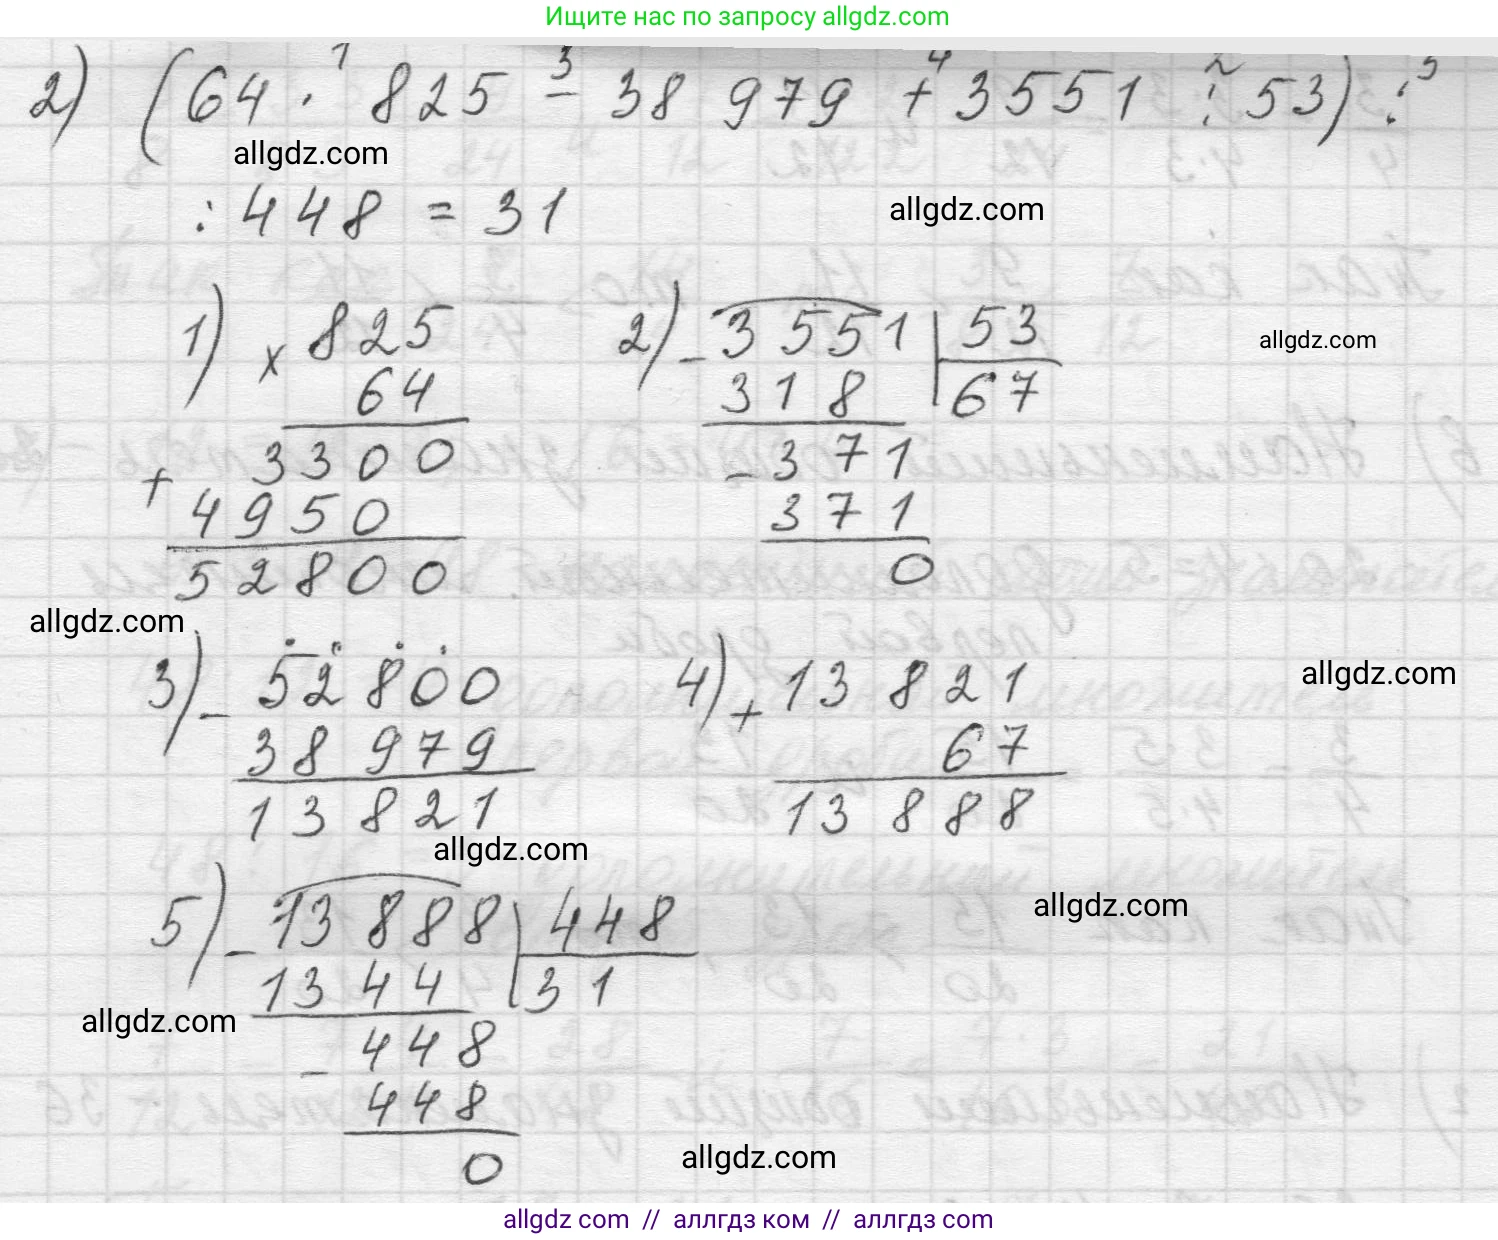 Ищите нас по запросу allgdz.com
2) (64 · 825 − 38 979 + 3551 : 53) :
1 3 4 2 5
allgdz.com
: 448 = 31
allgdz.com
1) × 825
64
3300
+ 4950
52800
2) − 3551 | 53
318 | 67
− 371
371
0
allgdz.com
allgdz.com
3) − 52800
38 979
13 821
4) + 13 821
67
13 888
allgdz.com
allgdz.com
5) − 13 888 | 448
1344 | 31
− 448
448
0
allgdz.com
allgdz.com
allgdz.com
allgdz com // аллгдз ком // аллгдз com